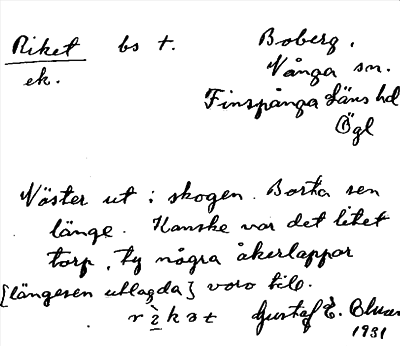 Riket bs t. Boberg.
ek. Vånga sn.
Finspånga läns hd
Ögl
Väster ut i skogen. Borta sen
länge. Kanske var det litet
torp, ty några åkerlappar
[längesen utlagda] voro till.
Gustaf E.
1931